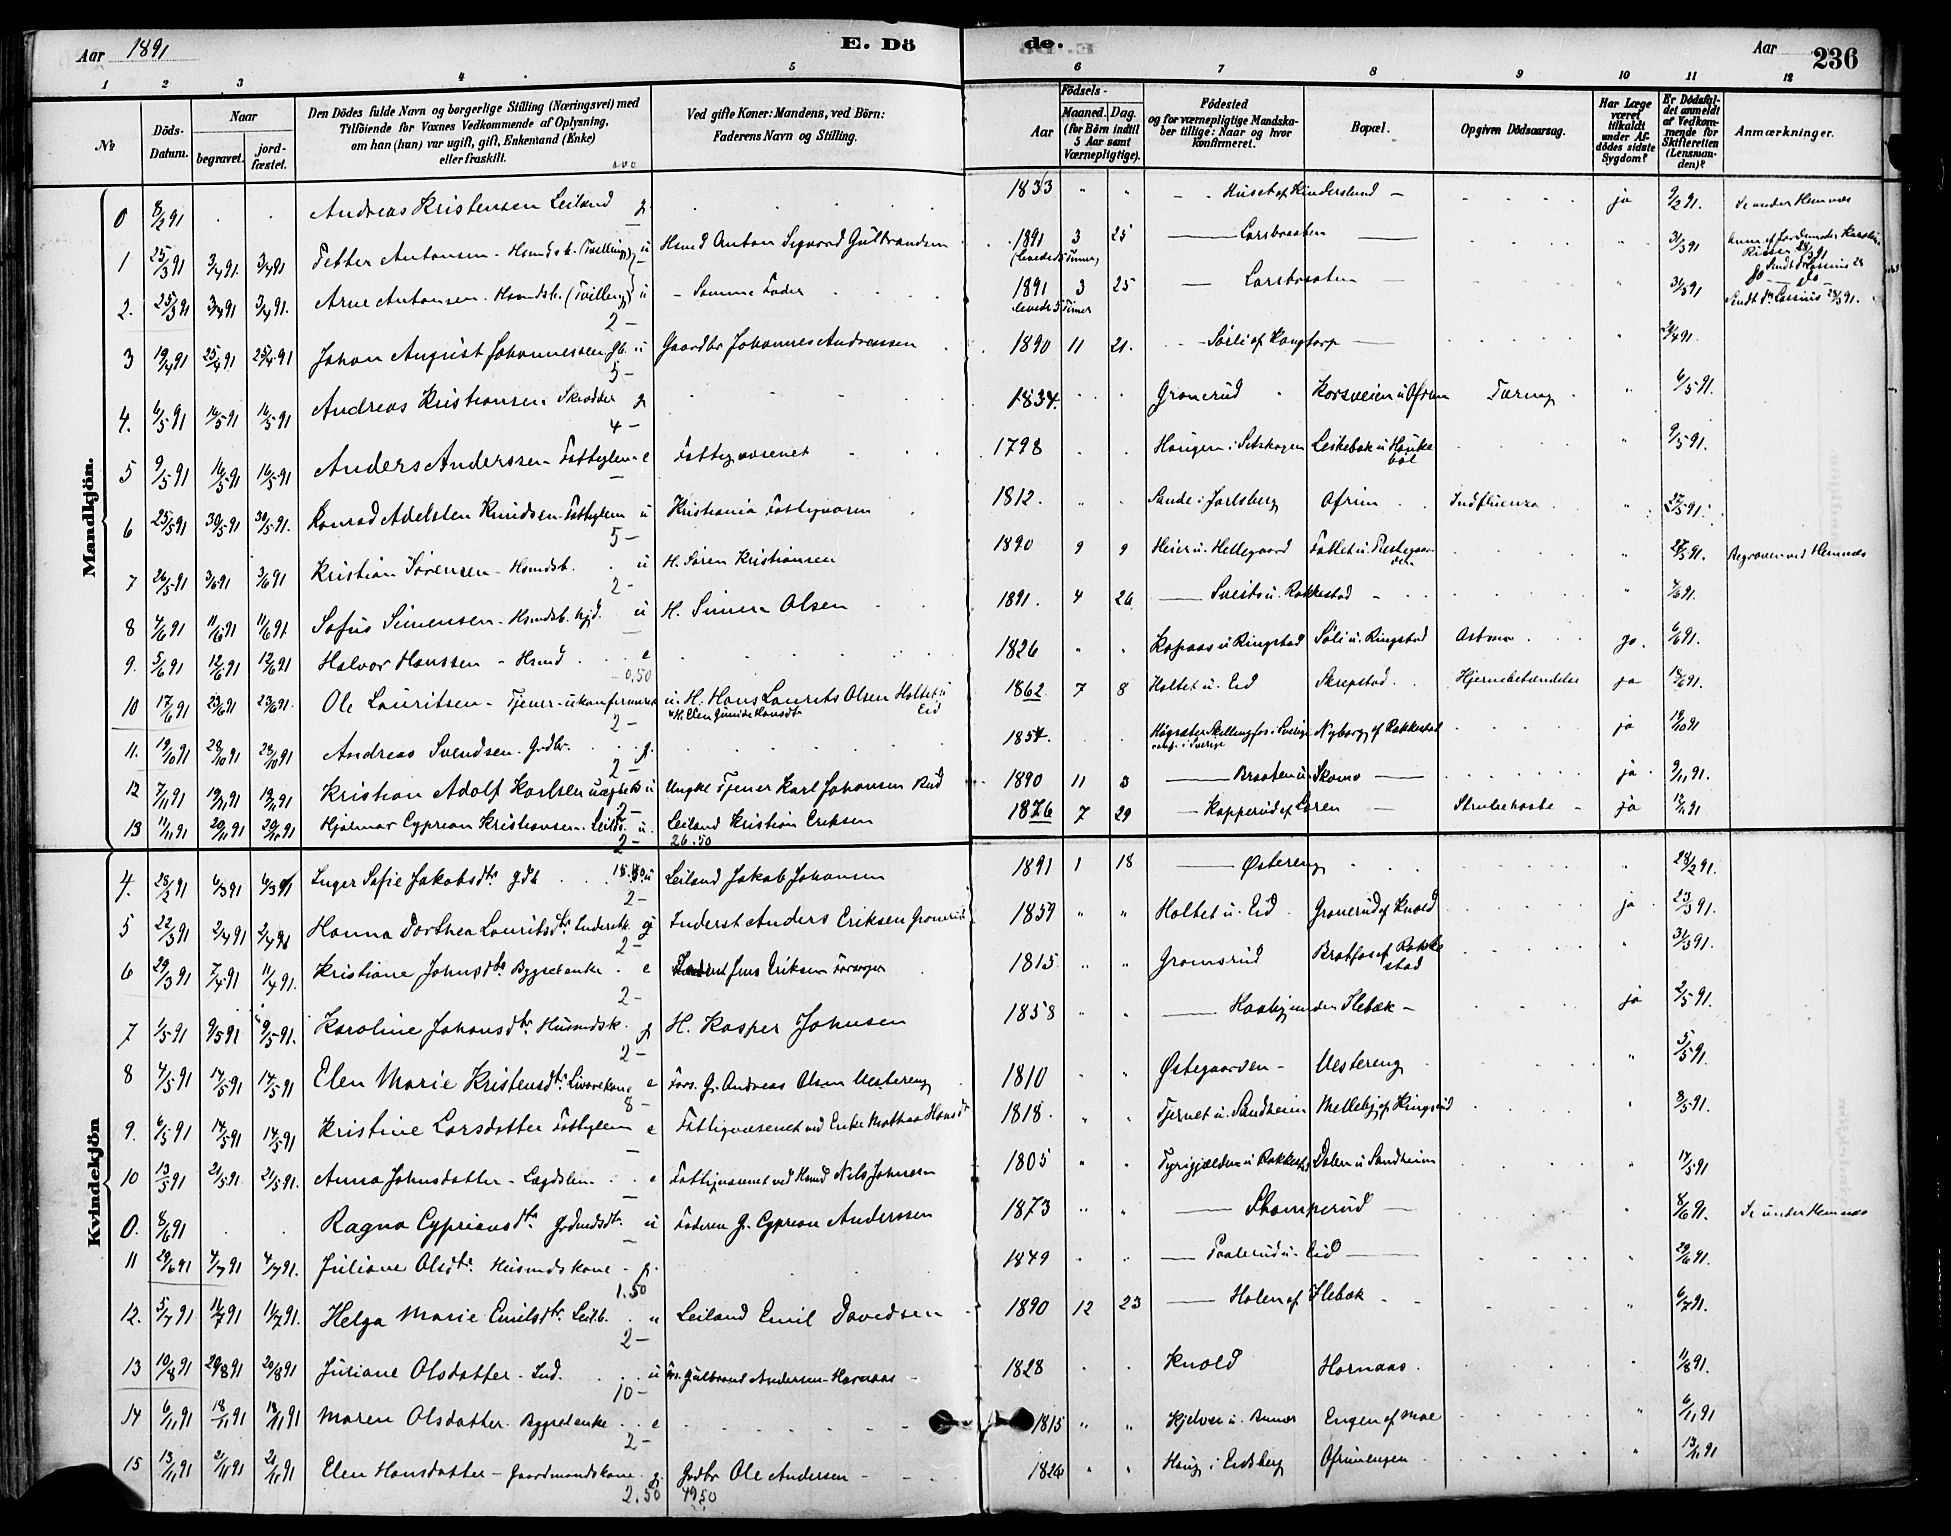 Aar 1891 E. Dö de. Aar 236
1 2 3 4 5 6 7 8 9 10 11 12
№ Döds-Datum. Naar begravet. jord-fæstet. Den Dödes fulde Navn og borgerlige Stilling (Næringsvei) med Tilföiende for Voxnes Vedkommende af Oplysning, om han (hun) var ugift, gift, Enkemand (Enke) eller fraskilt. Ved gifte Koner: Mandens, ved Börn: Faderens Navn og Stilling. Födsels- Aar Maaned. Dag. (for Börn indtil 5 Aar samt Værnepligtige). Födested og for værnepligtige Mandskaber tillige: Naar og hvor konfirmeret. Bopæl. Opgiven Dödsaarsag. Har Læge været tilkaldt under Afdödes sidste Sygdom? Er Dödsfaldet anmeldt af Vedkommende for Skifteretten (Lensmanden)? Anmærkninger.
Mandkjön.
0 8/2 91 . . Andreas Kristensen Leiland g. 1833 " " Huset af Kinderslund ja 9/2 91. Se under Hemnæs
1 25/3 91 3/4 91 3/4 91 Petter Antonsen. Hsmdsb. (Tvilling) u Hsmd Anton Sigvard Gulbrandsen 1891 3 25 Larsbraaten 31/3 91
(levede 5 Timer)
2. 25/3 91 3/4 91 3/4 91. Arne Antonsen. Hsmdsb. (Tvilling) u - Samme Fader 1891 3 25 Larsbraaten 31/3 91
levede 5 Timer
2 -
3 19/4 91 25/4 91 25/4 91 Johan August Johannessen gb. u Gaardbr Johannes Andreassen 1890 11 21. Sörli af Kongtorp 24/4 91.
5 -
4. 6/5 91 16/5 91 16/5 91 Andreas Kristiansen Skrædder g 1834. Gronerud Korsveien u Ofrim Tæring 6/5 91.
4 -
5 9/5 91 16/5 91 16/5 91 Anders Andersen Fattiglem e Fattigvæsenet 1798 Haugen i Setskogen Leikebæk u Haukebøl 9/5 91.
6 25/5 91 30/5 91 30/5 91. Konrad Adelsten Knudsen Fattiglem u Kristiania Fattigvæsen 1812. Sande i Jarlsberg Ofrim Indfluenza 27/5 91.
5 -
7 26/5 91 3/6 91 3/6 91 Kristian Sørensen - Hsmdsb. u H. Søren Kristiansen 1890 9 9 Heier u. Hellegaard 27/5 91. Begraven ved Hemnæs
2 -
8 4/6 91 11/6 91 11/6 91 Sofus Simensen - Hsmdsb. u H. Simen Olsen 1891. 4 26 Sveits u. Rakkestad 4/6 91.
9. 5/6 91 12/6 91 12/6 91 Halvor Hanssen - Hsmd. e 1826 " " Kopaas u Ringstad Søli u. Ringstad Astma ja. 6/6 91.
0,50
10 17/6 91 23/6 91 23/6 91. Ole Lauritsen - Tjener - ukonfirmeret u. H. Hans Laurits Olsen Holtet u Eid 1862 7 8 Holtet u. Eid Skrepstad Hjernebetændelse ja 18/6 91.
2 -
11. 19/10 91 28/10 91 28/10 91 Andreas Svendsen. Grdbr. g. 1854. Nyborg af Rakkestad ja 19/10 91
2 -
12 7/11 91 19/11 91 19/11 91 Kristian Adolf Karlsen uægte B u Ungkl Tjener Karl Johansen Rud 1890 11 3 Braaten u Skomo ja 9/11 91.
2 -
13 11/11 91 20/11 91 20/11 91 Hjalmar Cyprian Kristiansen. Leilb. u. Leiland Kristian Eriksen 1876 7 29 Kopperud af Loren Strubehoste ja 12/11 91
2 - 26.50
Kvindekjön
4. 28/2 91 6/3 91 6/3 91 Inger Sofie Jakobsdtr u Leiland Jakob Johansen 1891 1 18 Østereng 28/2 91.
2 -
5 22/3 91 2/4 91 2/4 91 Hanna Dorthea Lauritsdtr Inderstk g Inderst Anders Eriksen Gronerud 1859 " " Holtet u. Eid Gronerud af Knold ja 23/3 91.
2 -
6 29/3 91 7/4 91 11/4 91. Kristiane Johnsdtr Bygselenke e Jens Eriksen Forsørger 1815 Gromsrud Bratfos af Rakkestad 31/3 91.
2 -
7 1/5 91 9/5 91 9/5 91. Karoline Johansdtr. Husmdsk. g H. Kasper Johnsen 1858 Haabj under Ilebæk ja 2/5 91.
2 -
8 4/5 91 14/5 91 14/5 91 Elen Marie Kristensdtr. e Fors. G. Andreas Olsen Uestereng 1810 Østegaarden Uestereng 5/5 91.
8 -
9. 6/5 91 14/5 91 14/5 91. Kristine Larsdatter Fattiglem e Fattigvæsenet ved Enke Mathea Hansdtr 1818. Tjernet u. Sandheim Melleby af Kingsrud 8/5 91.
10 13/5 91 21/5 91 21/5 91. Anna Johnsdatter - Lægdslem e Fattigvæsenet ved Hsmd Nils Johnsen 1805 Tyrigjælden u Rakkestad Dalen u Sandheim 14/5 91
0. 8/6 91 . . Ragna Cypriansdtr Grdmdsdtr. u Faderen G. Cyprian Anderssen 1873 Skamperud 8/6 91. Se under Hemnæs
11 29/6 91 4/7 91 4/7 91. Juliane Olsdtr. Husmdskone g. 1849 Paalerud u. Eid 29/6 91.
1.50
12. 5/7 91 11/7 91 11/7 91. Helga Marie Emilsdtr. Leilb. " Leiland Emil Davidsen 1890 12 23 Holen af Ilebæk 6/7 91.
2 -
13 10/8 91 20/8 91 20/8 91 Juliane Olsdatter - Ind. u Fors. Gulbrand Andersen - Hornaas 1828 Knold Hornaas 11/8 91.
10 -
14 6/11 91 18/11 91 18/11 91 Maren Olsdatter. Bygselenke e 1815 Engen af Moe 6/11 91
2 -
15 13/11 91 21/11 91 21/11 91 Elen Hansdatter - Gaardmandskone g. Grdbr Ole Andersen 1826 Haug i Eidsberg Ofrimengen 13/11 91
2.50 49.50